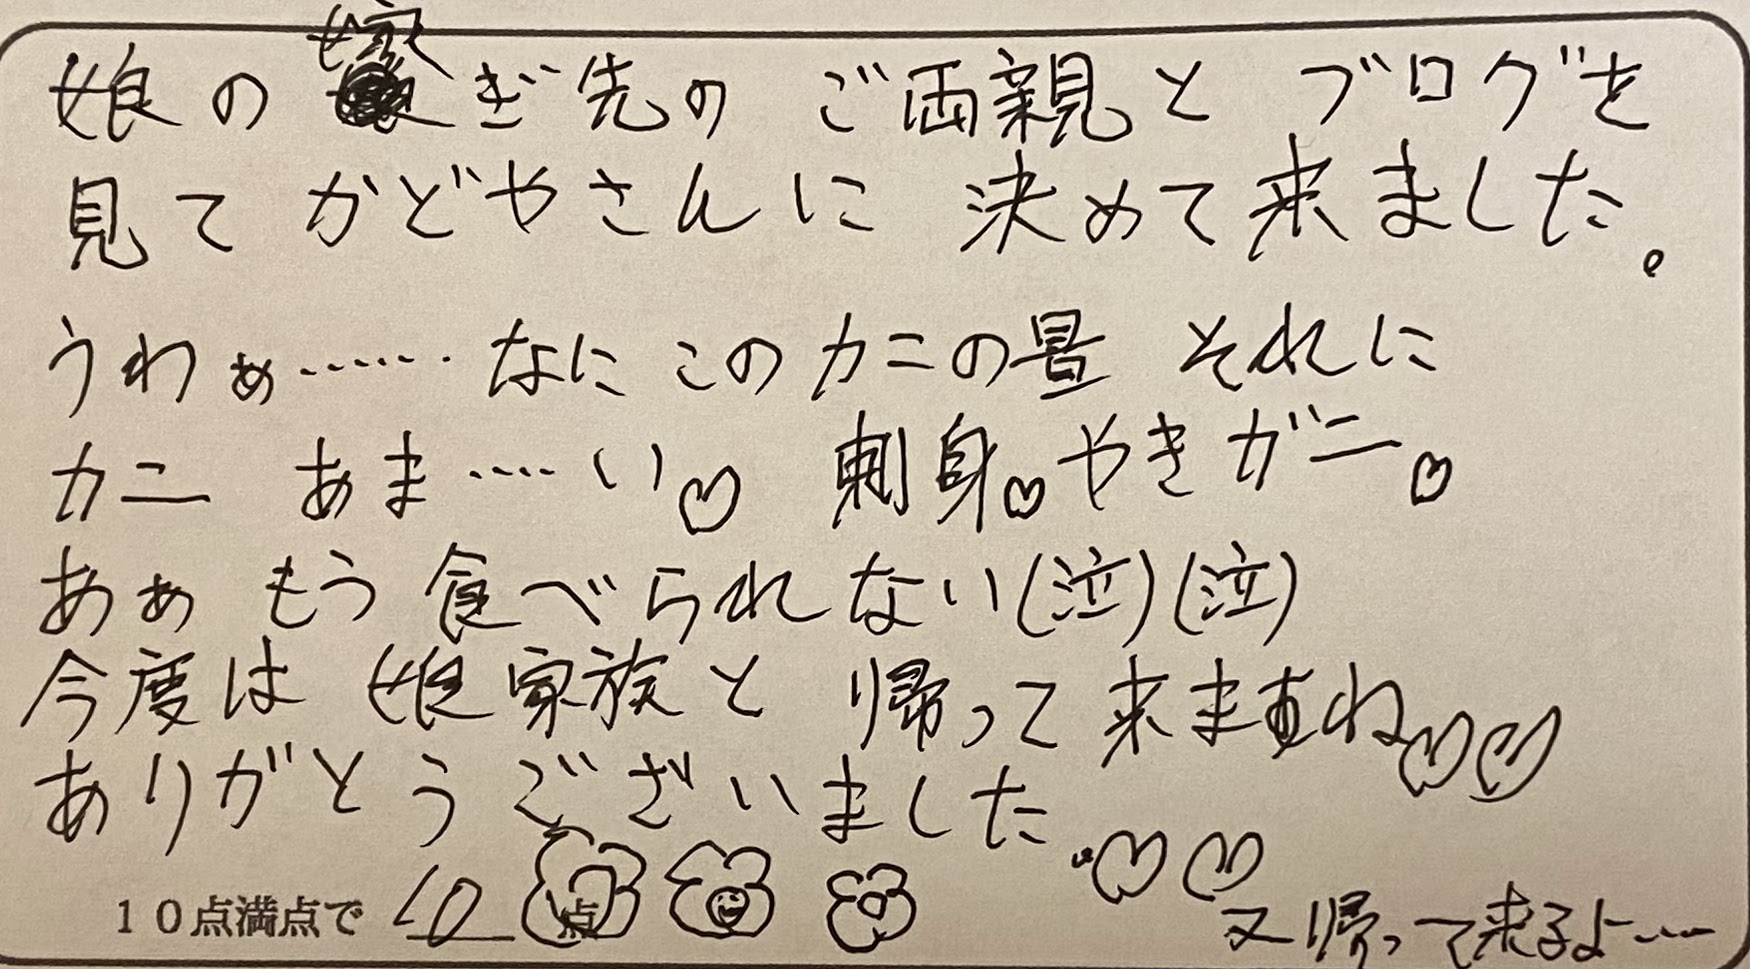 娘の嫁ぎ先のご両親とブログを
見てかどやさんに決めて来ました。
うわぁ……なにこのカニの量 それに
カニ あま……い♡ 刺身♡やきガニ♡
あぁ もう食べられない(泣)(泣)
今度は娘家族と帰って来ますね♡♡
ありがとうございました♡♡
10点満点で 10 点
又帰って来るよ……